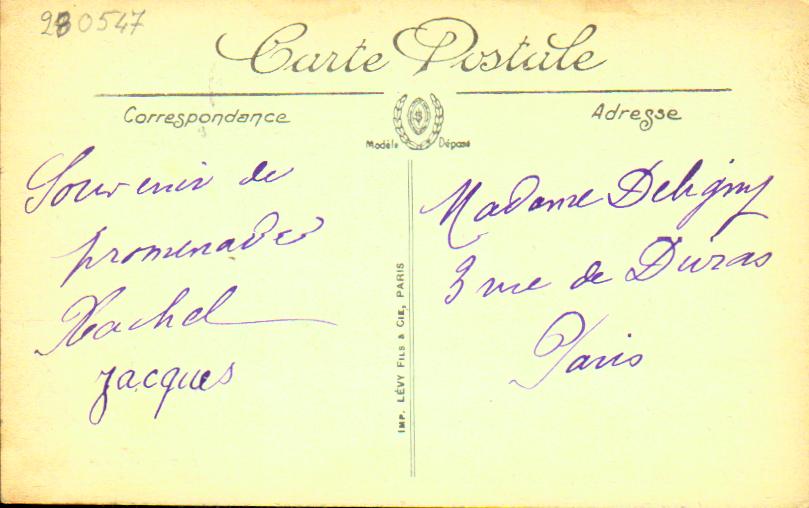 280547
Carte Postale
Correspondance
Adresse
Modèle Déposé
Souvenir de
promenade
Rachel
Jacques
IMP. LÉVY FILS & CIE, PARIS
Madame Deligny
3 rue de Duras
Paris